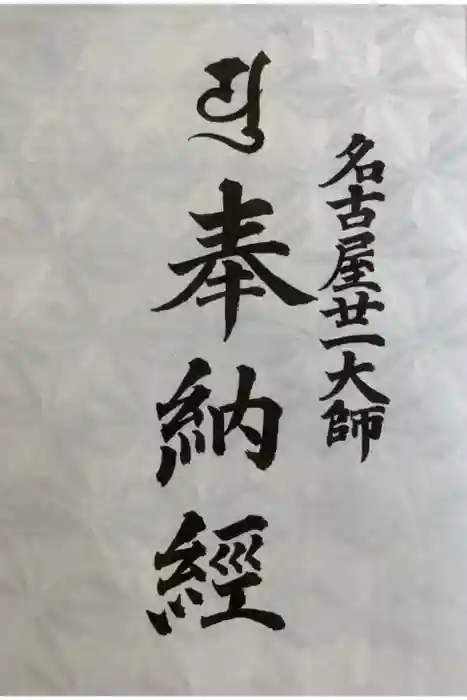 名古屋廿一大師
𑖧𑖲
奉納經